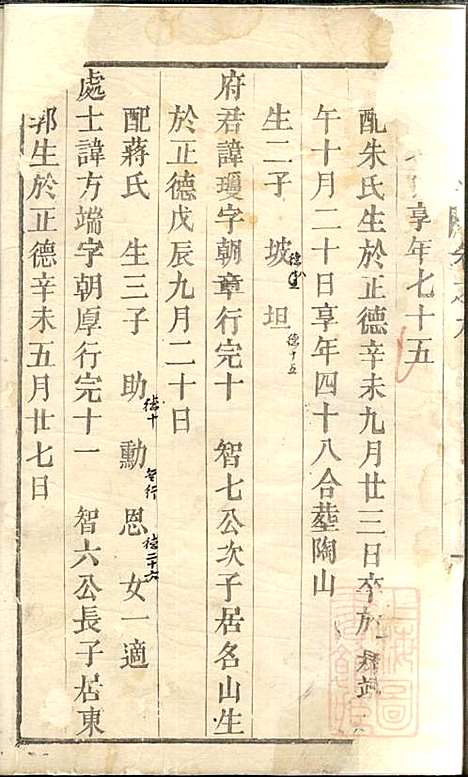 享年七十五
配朱氏生於正德辛未九月廿三日卒於
午十月二十日享年四十八合塟陶山
生二子 坡 德八 坦 德十五
府君諱瓊字朝章行完十 智七公次子居名山生
於正德戊辰九月二十日
配蔣氏 生三子 助 德十 勳 恩 德二十六 女一適
處士諱方端字朝厚行完十一 智六公長子居東
邦生於正德辛未五月廿七日